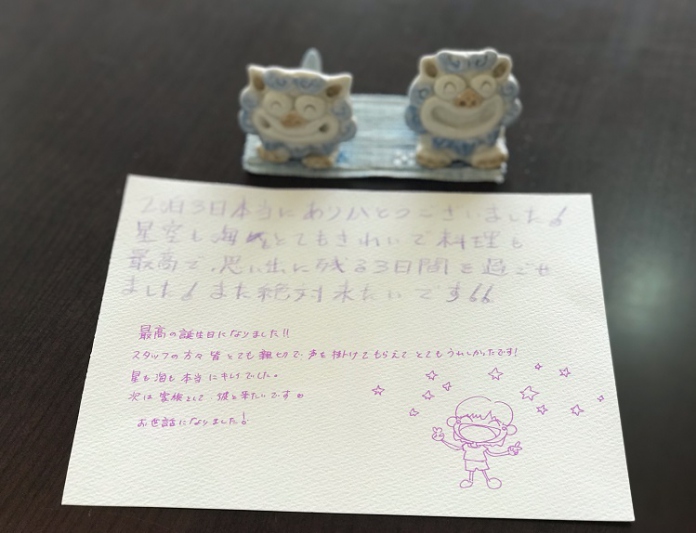 2泊3日本当にありがとうございました!
星空も海もとてもきれいで料理も
最高で、思い出に残る3日間を過ごせ
ました!また絶対来たいです!!
最高の誕生日になりました!!
スタッフの方々皆とても親切で、声を掛けてもらえてとてもうれしかったです!
星も海も本当にキレイでした。
次は家族として彼と来たいです
お世話になりました!